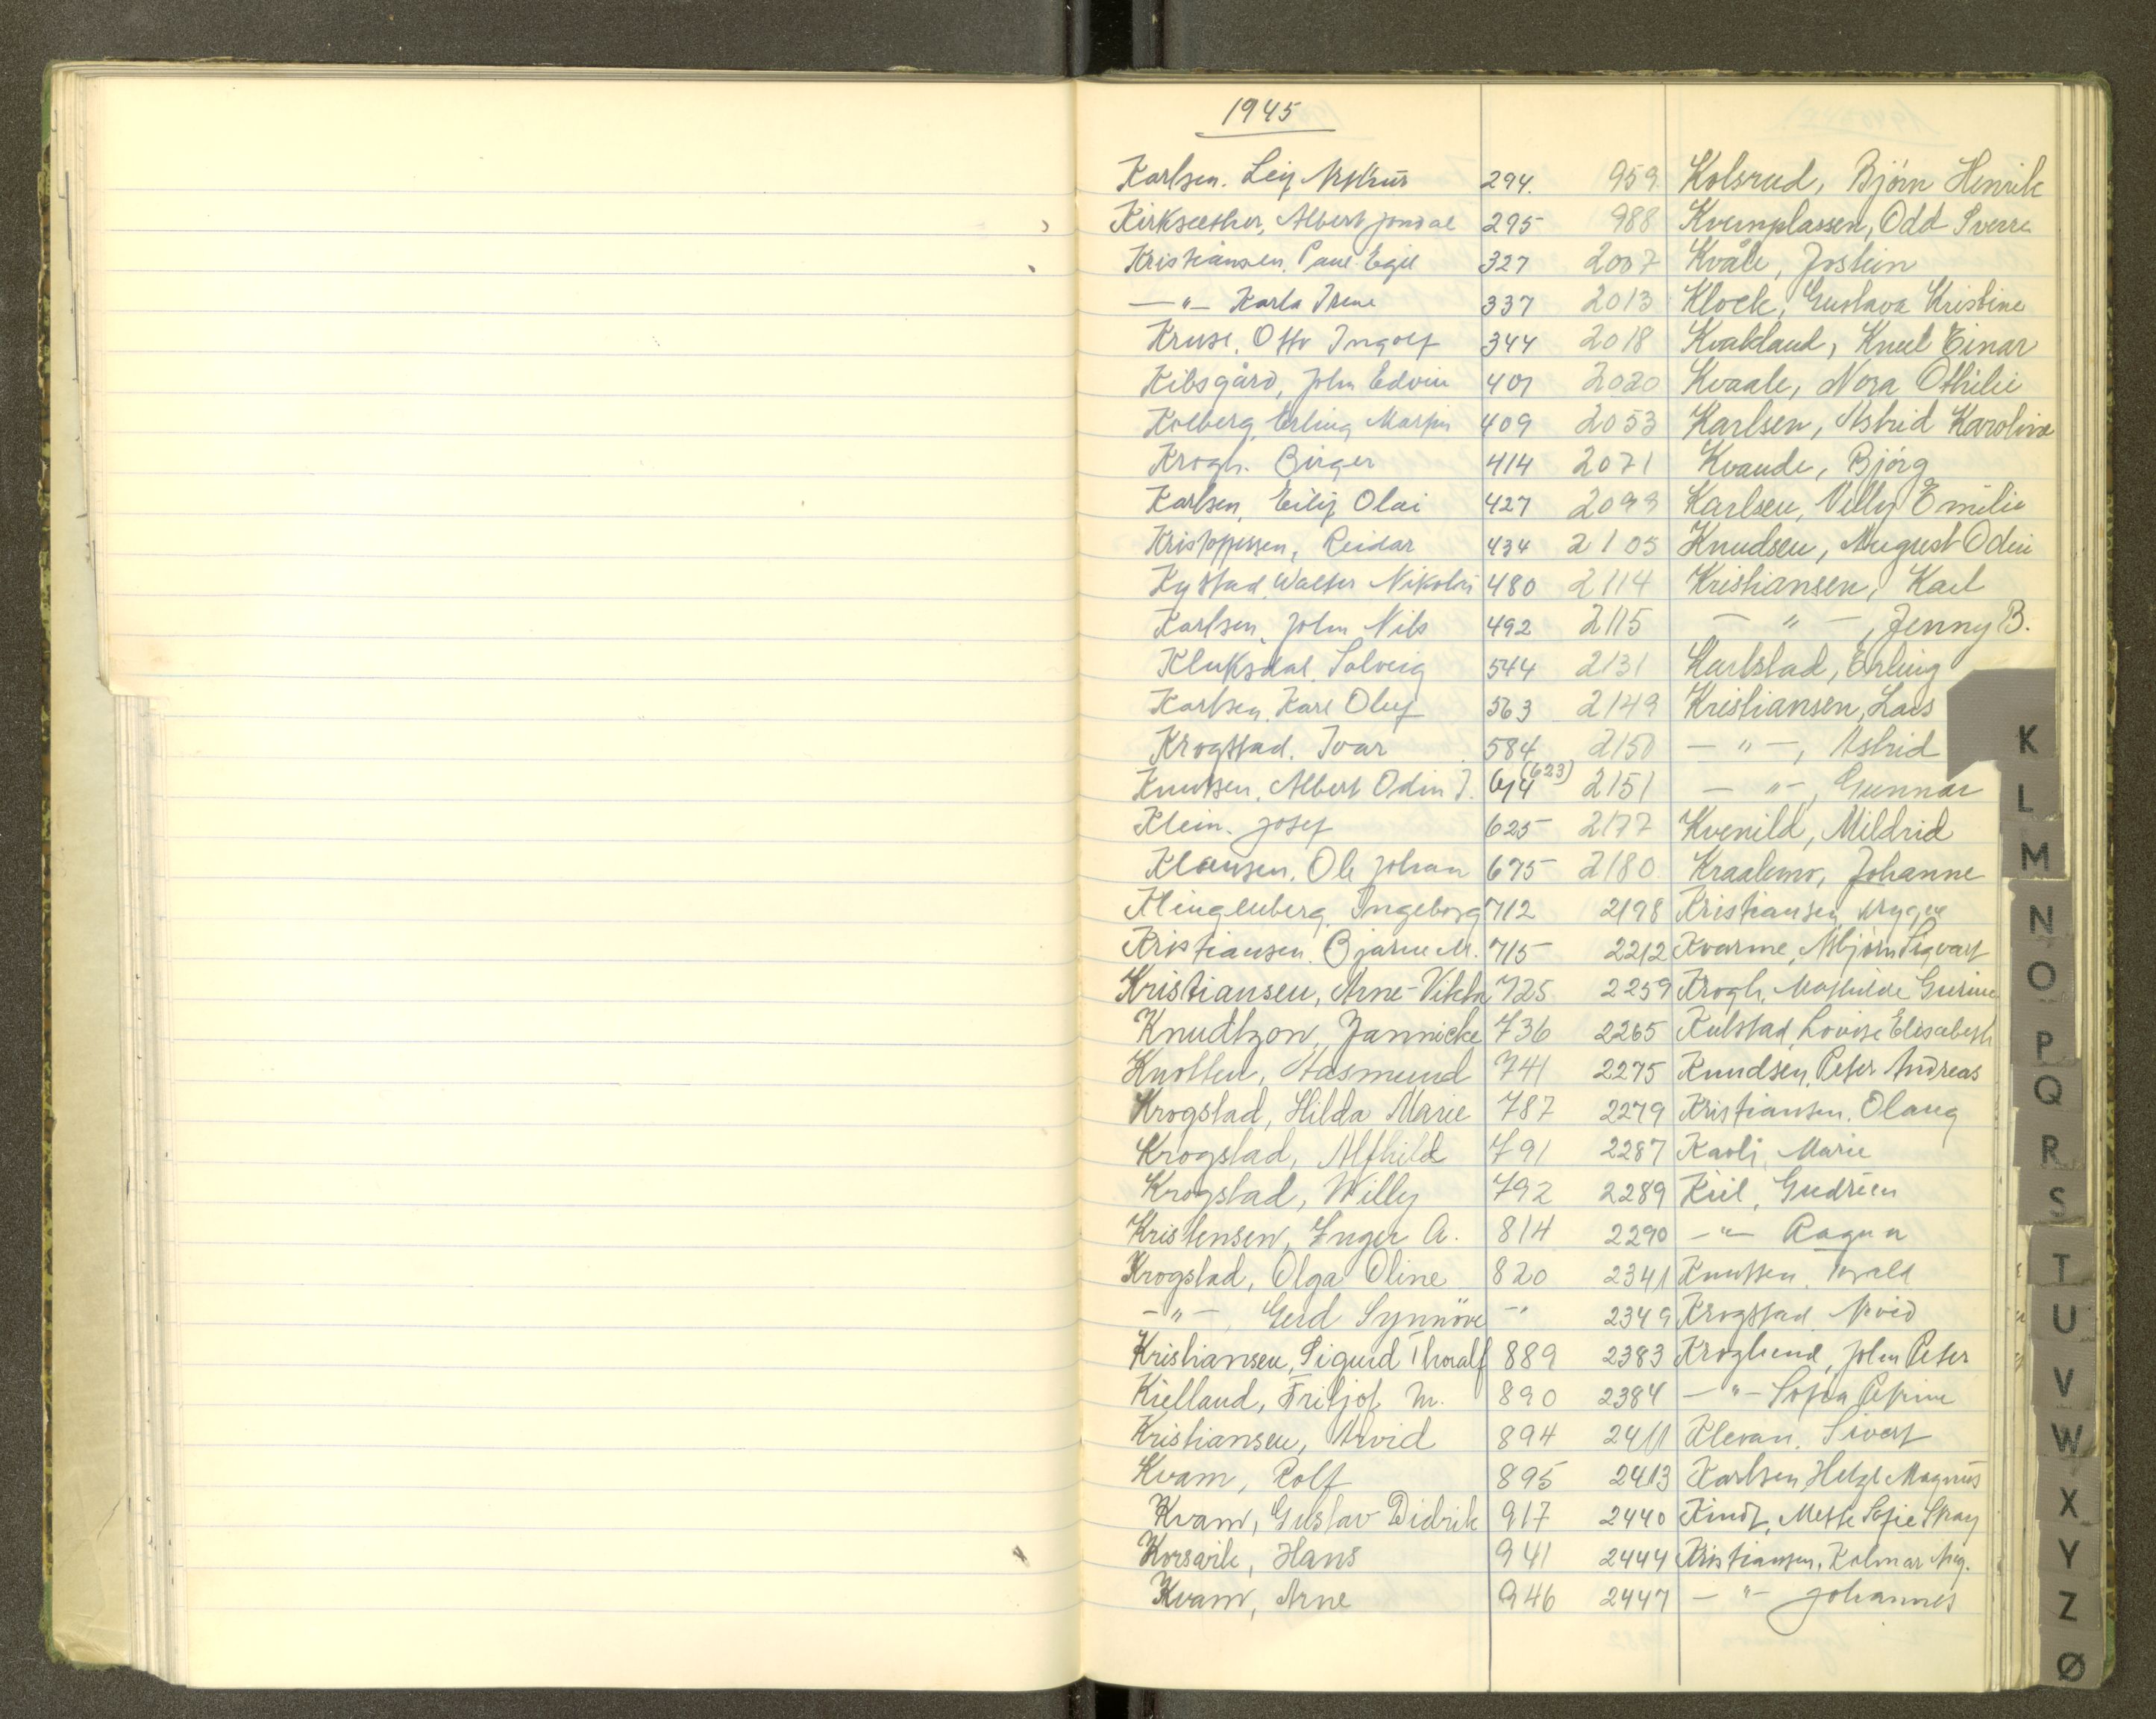 1945
Karlsen. Leif Arthur 294. 959. Kolsrud, Björn Henrik
Kirksæther, Albert Jondal 295 988 Kvernplassen, Odd Sverre
Kristiansen. Paul Egil 327 2007 Kvåle, Jostein
—"— Karla Irene 337 2013 Klock, Gustava Kristine
Kruse. Otto Ingolf 344 2018 Kvakland, Knut Einar
Kibsgård, John Edvin 401 2020 Kvaale, Nora Othilie
Kolberg, Erling Martin 409 2053 Karlsen, Astrid Karoline
Krogh. Birger 414 2071 Kvande, Bjørg
Karlsen, Eilif Olai 427 2099 Karlsen, Villy Emilie
Kristoffersen, Reidar 434 2105 Knudsen, August Odin
Kystad, Walter Nikolai 480 2114 Kristiansen, Karl
Karlsen, John Nils 492 2115 — " —, Jenny B.
Kluksdal, Solveig 544 2131 Karlstad, Erling
Karlsen, Karl Oluf 563 2149 Kristiansen, Lars
Krogstad. Ivar 584 2150 — " —, Astrid
Knutsen, Albert Odin J. 614 (623) 2151 — " —, Gunnar
Klein. Josef 625 2177 Kvenild, Mildrid
Klausen. Ole Johan 675 2180. Kraalemo, Johanne
Klingenberg, Ingeborg 712 2198 Kristiansen Trygve
Kristiansen. Bjarne M. 715 2212 Kvarme, Asbjørn Sigvart
Kristiansen, Arne-Viktor 725 2259 Krogh, Mathilde Gurine
Knudtzon, Jannicke 736 2265 Kulstad, Lovise Elisabeth
Knotten, Aasmund 741 2275 Knudsen, Peter Andreas
Krogstad, Hilda Marie 787 2279 Kristiansen. Olaug
Krogstad, Alfhild 791 2287 Kavli, Marie
Krogstad, Willy 792 2289 Kiil, Gudrun
Kristensen, Inger A. 814 2290 —"— Ragna
Krogstad, Olga Oline 820 2341 Knutsen. Torald
—"—, Gerd Synnöve —" 2349 Krogstad Arvid
Kristiansen, Sigurd Thoralf 889 2383 Kroglund, John Peter
Kielland, Fritjof M. 890 2384 —"— Sofia Petrine
Kristiansen, Arvid 894 2411 Klevan. Sivert
Kvam, Rolf 895 2413 Karlsen, Helge Magnus
Kvam, Gustav Didrik 917 2440 Kindt, Mette Sofie Skay
Korsvik, Hans 941 2444 Kristiansen, Kolmar Aug.
Kvam, Arne 946 2447 — " — Johannes
K
L
M
N
O
P
Q
R
S
T
U
V
W
X
Y
Z
Ø